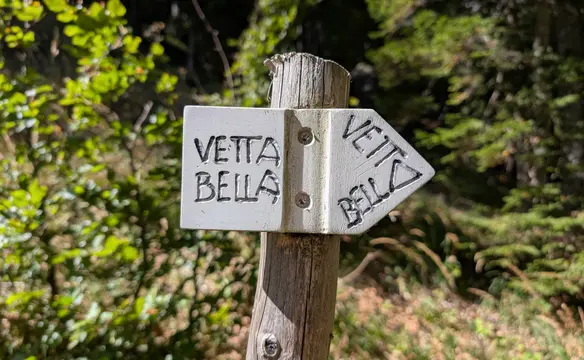 VETTA
BELLA
VETTA
BELLA